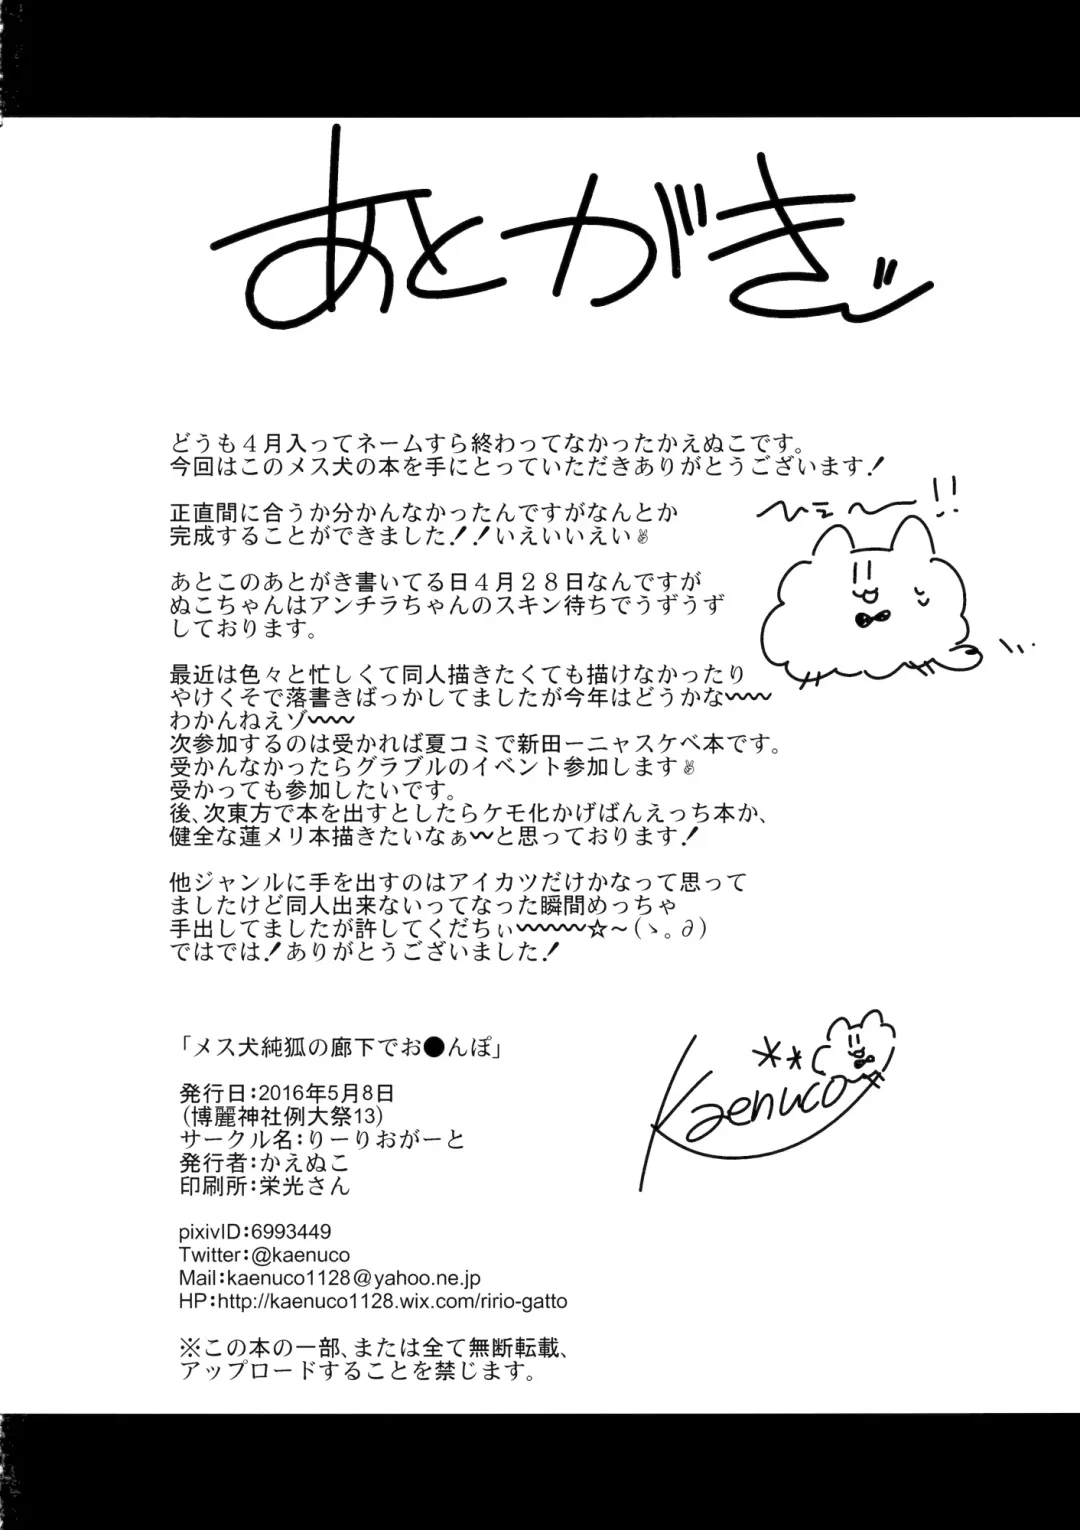 あとがきッ
どうも４月入ってネームすら終わってなかったかえぬこです。
今回はこのメス犬の本を手にとっていただきありがとうございます！
正直間に合うか分かんなかったんですがなんとか
完成することができました！！いえいいえい✌
あとこのあとがき書いてる日４月２８日なんですが
ぬこちゃんはアンチラちゃんのスキン待ちでうずうず
しております。
最近は色々と忙しくて同人描きたくても描けなかったり
やけくそで落書きばっかしてましたが今年はどうかな〰〰
わかんねえゾ〰〰
次参加するのは受かれば夏コミで新田ーニャスケベ本です。
受かんなかったらグラブルのイベント参加します✌
受かっても参加したいです。
後、次東方で本を出すとしたらケモ化かげばんえっち本か、
健全な蓮メリ本描きたいなぁ〰と思っております！
他ジャンルに手を出すのはアイカツだけかなって思って
ましたけど同人出来ないってなった瞬間めっちゃ
手出してましたが許してくだちぃ〰〰〰☆～(ゝ。∂)
ではでは！ありがとうございました！
ひェ〜!!
「メス犬純狐の廊下でお●んぽ」
発行日：2016年5月8日
（博麗神社例大祭13）
サークル名：りーりおがーと
発行者：かえぬこ
印刷所：栄光さん
Kaenuco
pixivID：6993449
Twitter：@kaenuco
Mail：kaenuco1128@yahoo.ne.jp
HP：http://kaenuco1128.wix.com/ririo-gatto
※この本の一部、または全て無断転載、
アップロードすることを禁じます。